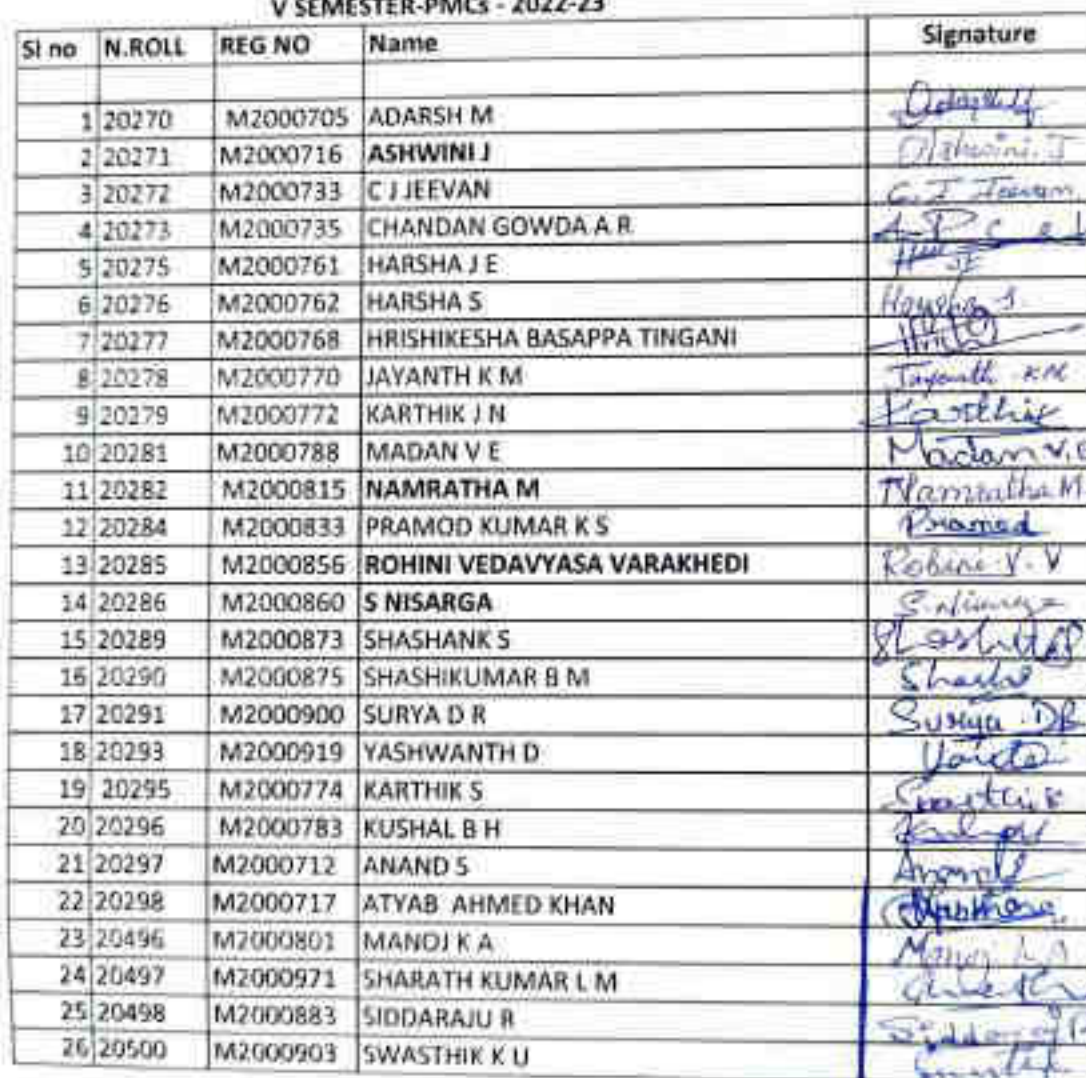 V SEMESTER-PMCs - 2022-23
Sl no N.ROLL REG NO Name Signature
1 20270 M2000705 ADARSH M
2 20271 M2000716 ASHWINI J Ashwini. J
3 20272 M2000733 C J JEEVAN C.J Jeevan
4 20273 M2000735 CHANDAN GOWDA A R
5 20275 M2000761 HARSHA J E
6 20276 M2000762 HARSHA S Harsha S.
7 20277 M2000768 HRISHIKESHA BASAPPA TINGANI
8 20278 M2000770 JAYANTH K M Jayanth KM
9 20279 M2000772 KARTHIK J N Karthik
10 20281 M2000788 MADAN V E Madan V.E
11 20282 M2000815 NAMRATHA M Namratha M
12 20284 M2000833 PRAMOD KUMAR K S Pramod
13 20285 M2000856 ROHINI VEDAVYASA VARAKHEDI Rohini V. V
14 20286 M2000860 S NISARGA S. Nisarga
15 20289 M2000873 SHASHANK S
16 20290 M2000875 SHASHIKUMAR B M Shashi
17 20291 M2000900 SURYA D R Surya DR
18 20293 M2000919 YASHWANTH D
19 20295 M2000774 KARTHIK S
20 20296 M2000783 KUSHAL B H
21 20297 M2000712 ANAND S Anand
22 20298 M2000717 ATYAB AHMED KHAN
23 20496 M2000801 MANOJ K A Manoj K A
24 20497 M2000971 SHARATH KUMAR L M
25 20498 M2000883 SIDDARAJU R Siddaraju R
26 20500 M2000903 SWASTHIK K U